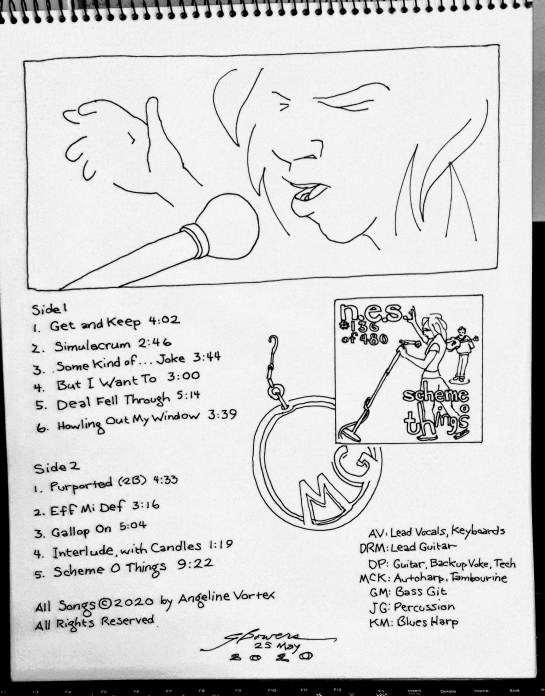 Side 1
1. Get and Keep 4:02
2. Simulacrum 2:46
3. Some Kind of... Joke 3:44
4. But I Want To 3:00
5. Deal Fell Through 5:14
6. Howling Out My Window 3:39
Side 2
1. Purported (2B) 4:33
2. Eff Mi Def 3:16
3. Gallop On 5:04
4. Interlude, with Candles 1:19
5. Scheme O Things 9:22
All Songs © 2020 by Angeline Vortex
All Rights Reserved
n.e.s.
#136
of 480
scheme
o
things
MG
AV: Lead Vocals, Keyboards
DRM: Lead Guitar
DP: Guitar, Backup Voke, Tech
MCK: Autoharp, Tambourine
GM: Bass Git
JG: Percussion
KM: Blues Harp
SBowers
25 May
2020